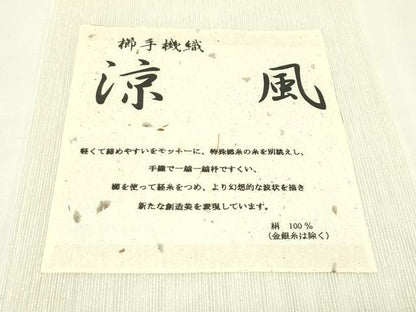 櫛手機織
涼風
軽くて締めやすいをモットーに、特殊撚糸の糸を別誂えし、
手織で一越一越杼ですくい、
櫛を使って経糸をつめ、より幻想的な波状を描き
新たな創造美を表現しています。
絹 100%
(金銀糸は除く)